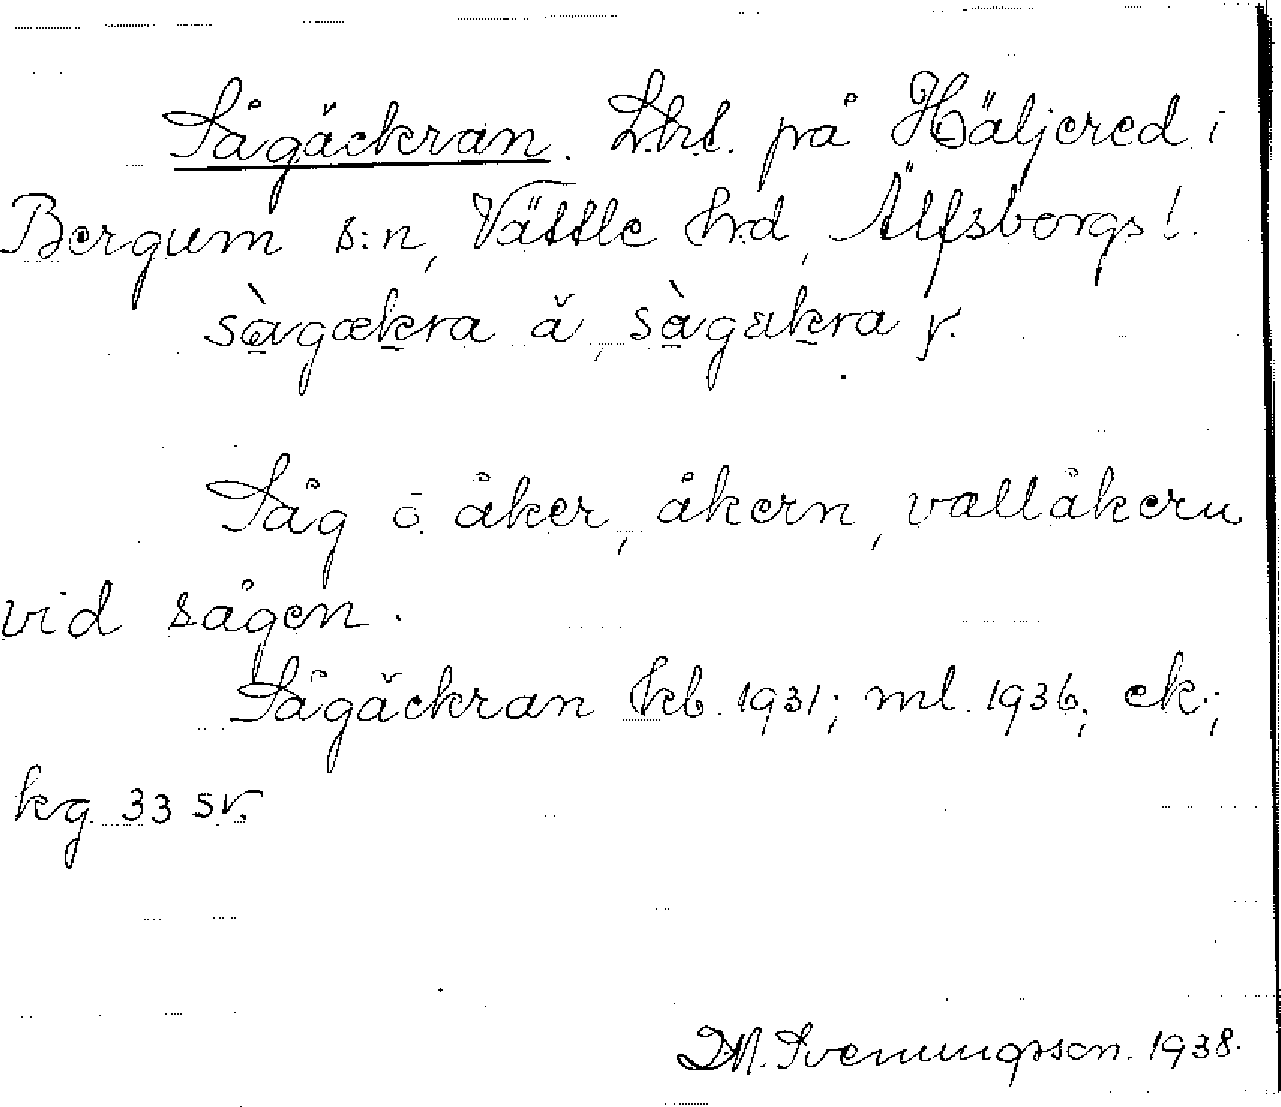 Sågäckran. Lht. på Häljered i
Bergum s:n, Vättle hrd, Älfsborgs l.
sàgækra ä, sàgakra y.
Såg o. åker, åkern, vallåkern
vid sågen.
Sågäckran kb. 1931; ml. 1936; ek.;
kg 33 sv.
D.M. Svenungsson. 1938.